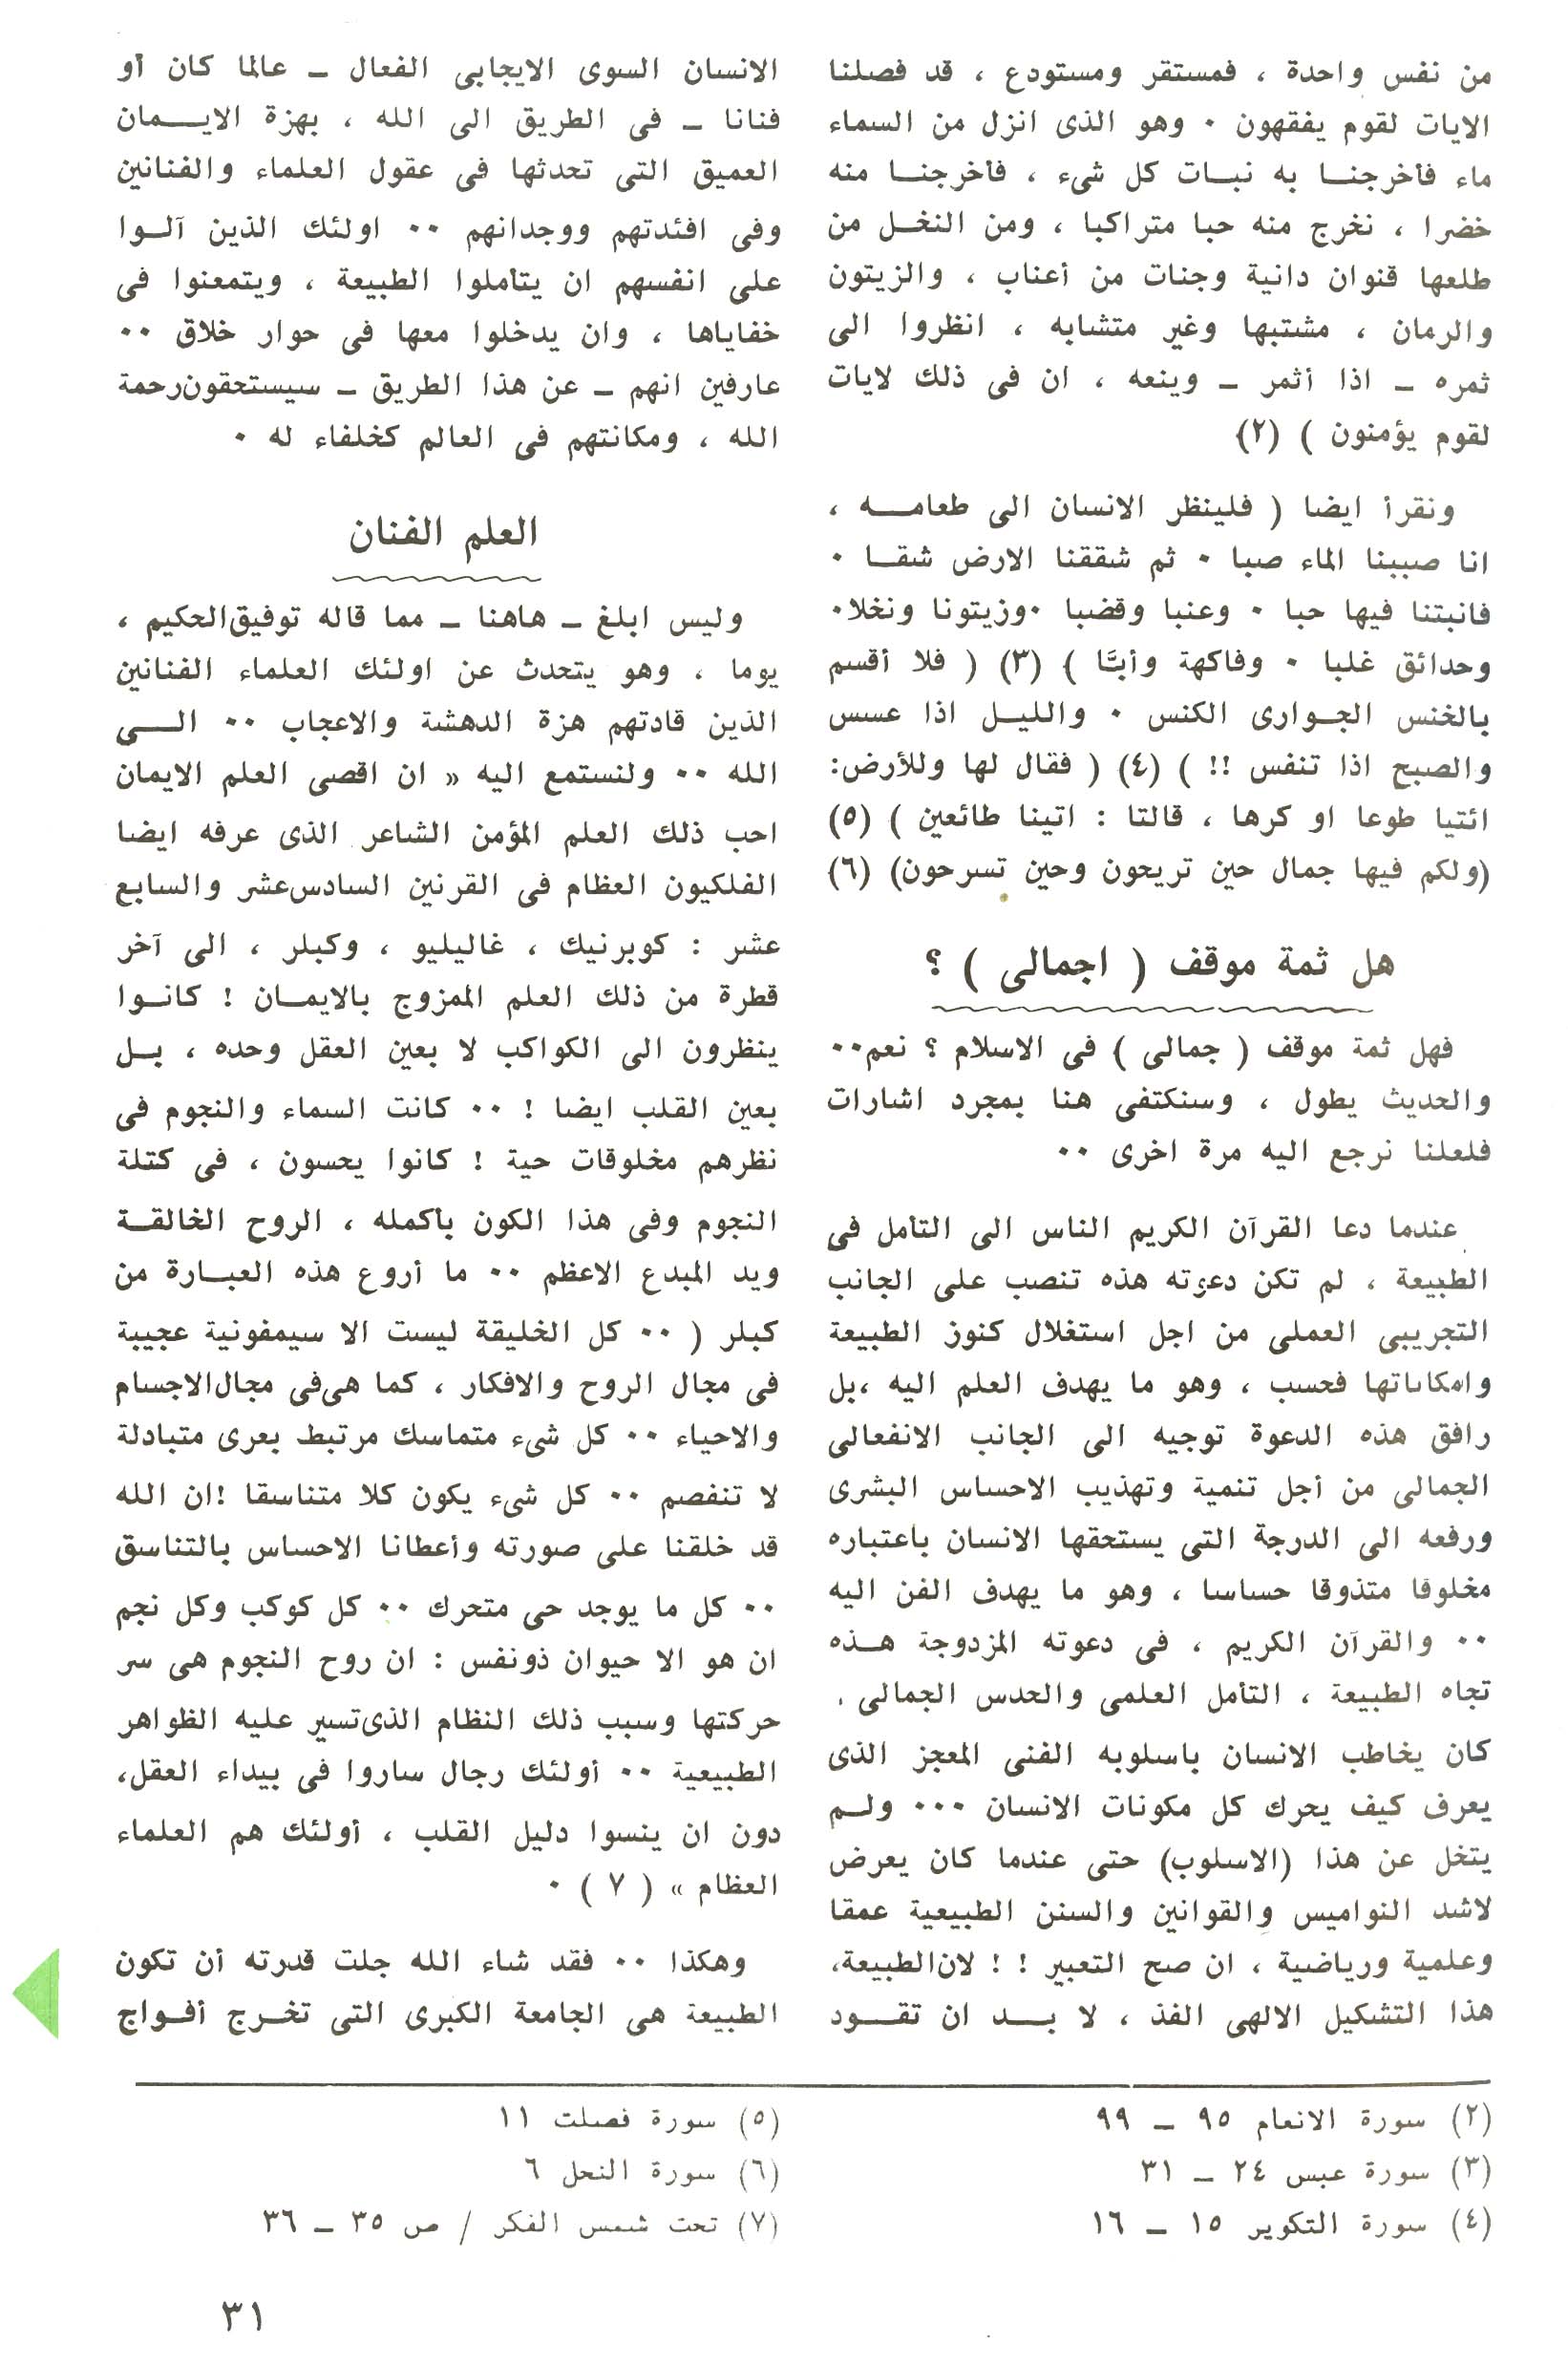 من نفس واحدة ، فمستقر ومستودع ، قد فصلنا
الايات لقوم يفقهون ٠ وهو الذى انزل من السماء
ماء فأخرجنـا به نبـات كل شىء ، فأخرجنـا منه
خضرا ، نخرج منه حبا متراكبا ، ومن النخـل من
طلعها قنوان دانية وجنات من أعناب ، والزيتون
والرمان ، مشتبها وغير متشابه ، انظروا الى
ثمره ــ اذا أثمر ــ وينعه ، ان فى ذلك لايات
لقوم يؤمنون ) (٢)
ونقرأ ايضا ( فلينظر الانسان الى طعامـــه ،
انا صببنا الماء صبا ٠ ثم شققنا الارض شقـا ٠
فانبتنا فيها حبا ٠ وعنبا وقضبا ٠وزيتونا ونخلا٠
وحدائق غلبا ٠ وفاكهة وأبًّا ) (٣) ( فلا أقسم
بالخنس الجـوارى الكنس ٠ والليـل اذا عسس
والصبح اذا تنفس !! ) (٤) ( فقال لها وللأرض:
ائتيا طوعا او كرها ، قالتا : اتينا طائعين ) (٥)
(ولكم فيها جمال حين تريحون وحين تسرحون) (٦)
هل ثمة موقف ( اجمالى ) ؟
فهل ثمة موقف ( جمالى ) فى الاسلام ؟ نعم٠٠
والحديث يطول ، وسنكتفى هنا بمجرد اشارات
فلعلنا نرجع اليه مرة اخرى ٠٠
عندما دعا القرآن الكريم الناس الى التأمل فى
الطبيعة ، لم تكن دعوته هذه تنصب على الجانب
التجريبى العملى من اجل استغلال كنوز الطبيعة
وامكاناتها فحسب ، وهو ما يهدف العلم اليه ،بل
رافق هذه الدعوة توجيه الى الجانب الانفعالى
الجمالى من أجل تنمية وتهذيب الاحساس البشرى
ورفعه الى الدرجة التى يستحقها الانسان باعتباره
مخلوقا متذوقا حساسا ، وهو ما يهدف الفن اليه
٠٠ والقرآن الكريم ، فى دعوته المزدوجة هـذه
تجاه الطبيعة ، التأمل العلمى والحدس الجمالى ،
كان يخاطب الانسان باسلوبه الفنى المعجز الذى
يعرف كيف يحرك كل مكونات الانسان ٠٠٠ ولـم
يتخل عن هذا (الاسلوب) حتى عندما كان يعرض
لاشد النواميس والقوانين والسنن الطبيعية عمقا
وعلمية ورياضية ، ان صح التعبير ! ! لان الطبيعة،
هذا التشكيل الالهى الفذ ، لا بـــد ان تقــود
الانسان السوى الايجابى الفعال ــ عالما كان أو
فنانا ــ فى الطريق الى الله ، بهزة الايـــمان
العميق التى تحدثها فى عقول العلماء والفنانين
وفى افئدتهم ووجدانهم ٠٠ اولئك الذين آلـوا
على انفسهم ان يتأملوا الطبيعة ، ويتمعنوا فى
خفاياها ، وان يدخلوا معها فى حوار خلاق ٠٠
عارفين انهم ــ عن هذا الطريق ــ سيستحقون رحمة
الله ، ومكانتهم فى العالم كخلفاء له ٠
العلم الفنان
وليس ابلغ ــ هاهنا ــ مما قاله توفيق الحكيم ،
يوما ، وهو يتحدث عن اولئك العلماء الفنانين
الذين قادتهم هزة الدهشة والاعجاب ٠٠ الـــى
الله ٠٠ ولنستمع اليه « ان اقصى العلم الايمان
احب ذلك العلم المؤمن الشاعر الذى عرفه ايضا
الفلكيون العظام فى القرنين السادس عشر والسابع
عشر : كوبرنيك ، غاليليو ، وكبلر ، الى آخر
قطرة من ذلك العلم الممزوج بالايمـان ! كانـوا
ينظرون الى الكواكب لا بعين العقل وحده ، بـل
بعين القلب ايضا ! ٠٠ كانت السماء والنجوم فى
نظرهم مخلوقات حية ! كانوا يحسون ، فى كتلة
النجوم وفى هذا الكون بأكمله ، الروح الخالقـة
ويد المبدع الاعظم ٠٠ ما أروع هذه العبـارة من
كبلر ( ٠٠ كل الخليقة ليست الا سيمفونية عجيبة
فى مجال الروح والافكار ، كما هى فى مجال الاجسام
والاحياء ٠٠ كل شىء متماسك مرتبط بعرى متبادلة
لا تنفصم ٠٠ كل شىء يكون كلا متناسقا !ان الله
قد خلقنا على صورته وأعطانا الاحساس بالتناسق
٠٠ كل ما يوجد حى متحرك ٠٠ كل كوكب وكل نجم
ان هو الا حيوان ذونفس : ان روح النجوم هى سر
حركتها وسبب ذلك النظام الذى تسير عليه الظواهر
الطبيعية ٠٠ أولئك رجال ساروا فى بيداء العقل،
دون ان ينسوا دليل القلب ، أولئك هم العلماء
العظام » ( ٧ ) ٠
وهكذا ٠٠ فقد شاء الله جلت قدرته أن تكون
الطبيعة هى الجامعة الكبرى التى تخـرج أفـواج
(٢) سورة الانعام ٩٥ ــ ٩٩
(٣) سورة عبس ٢٤ ــ ٣١
(٤) سورة التكوير ١٥ ــ ١٦
(٥) سورة فصلت ١١
(٦) سورة النحل ٦
(٧) تحت شمس الفكر / ص ٣٥ ــ ٣٦
٣١